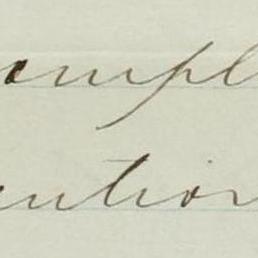 ompl
ention